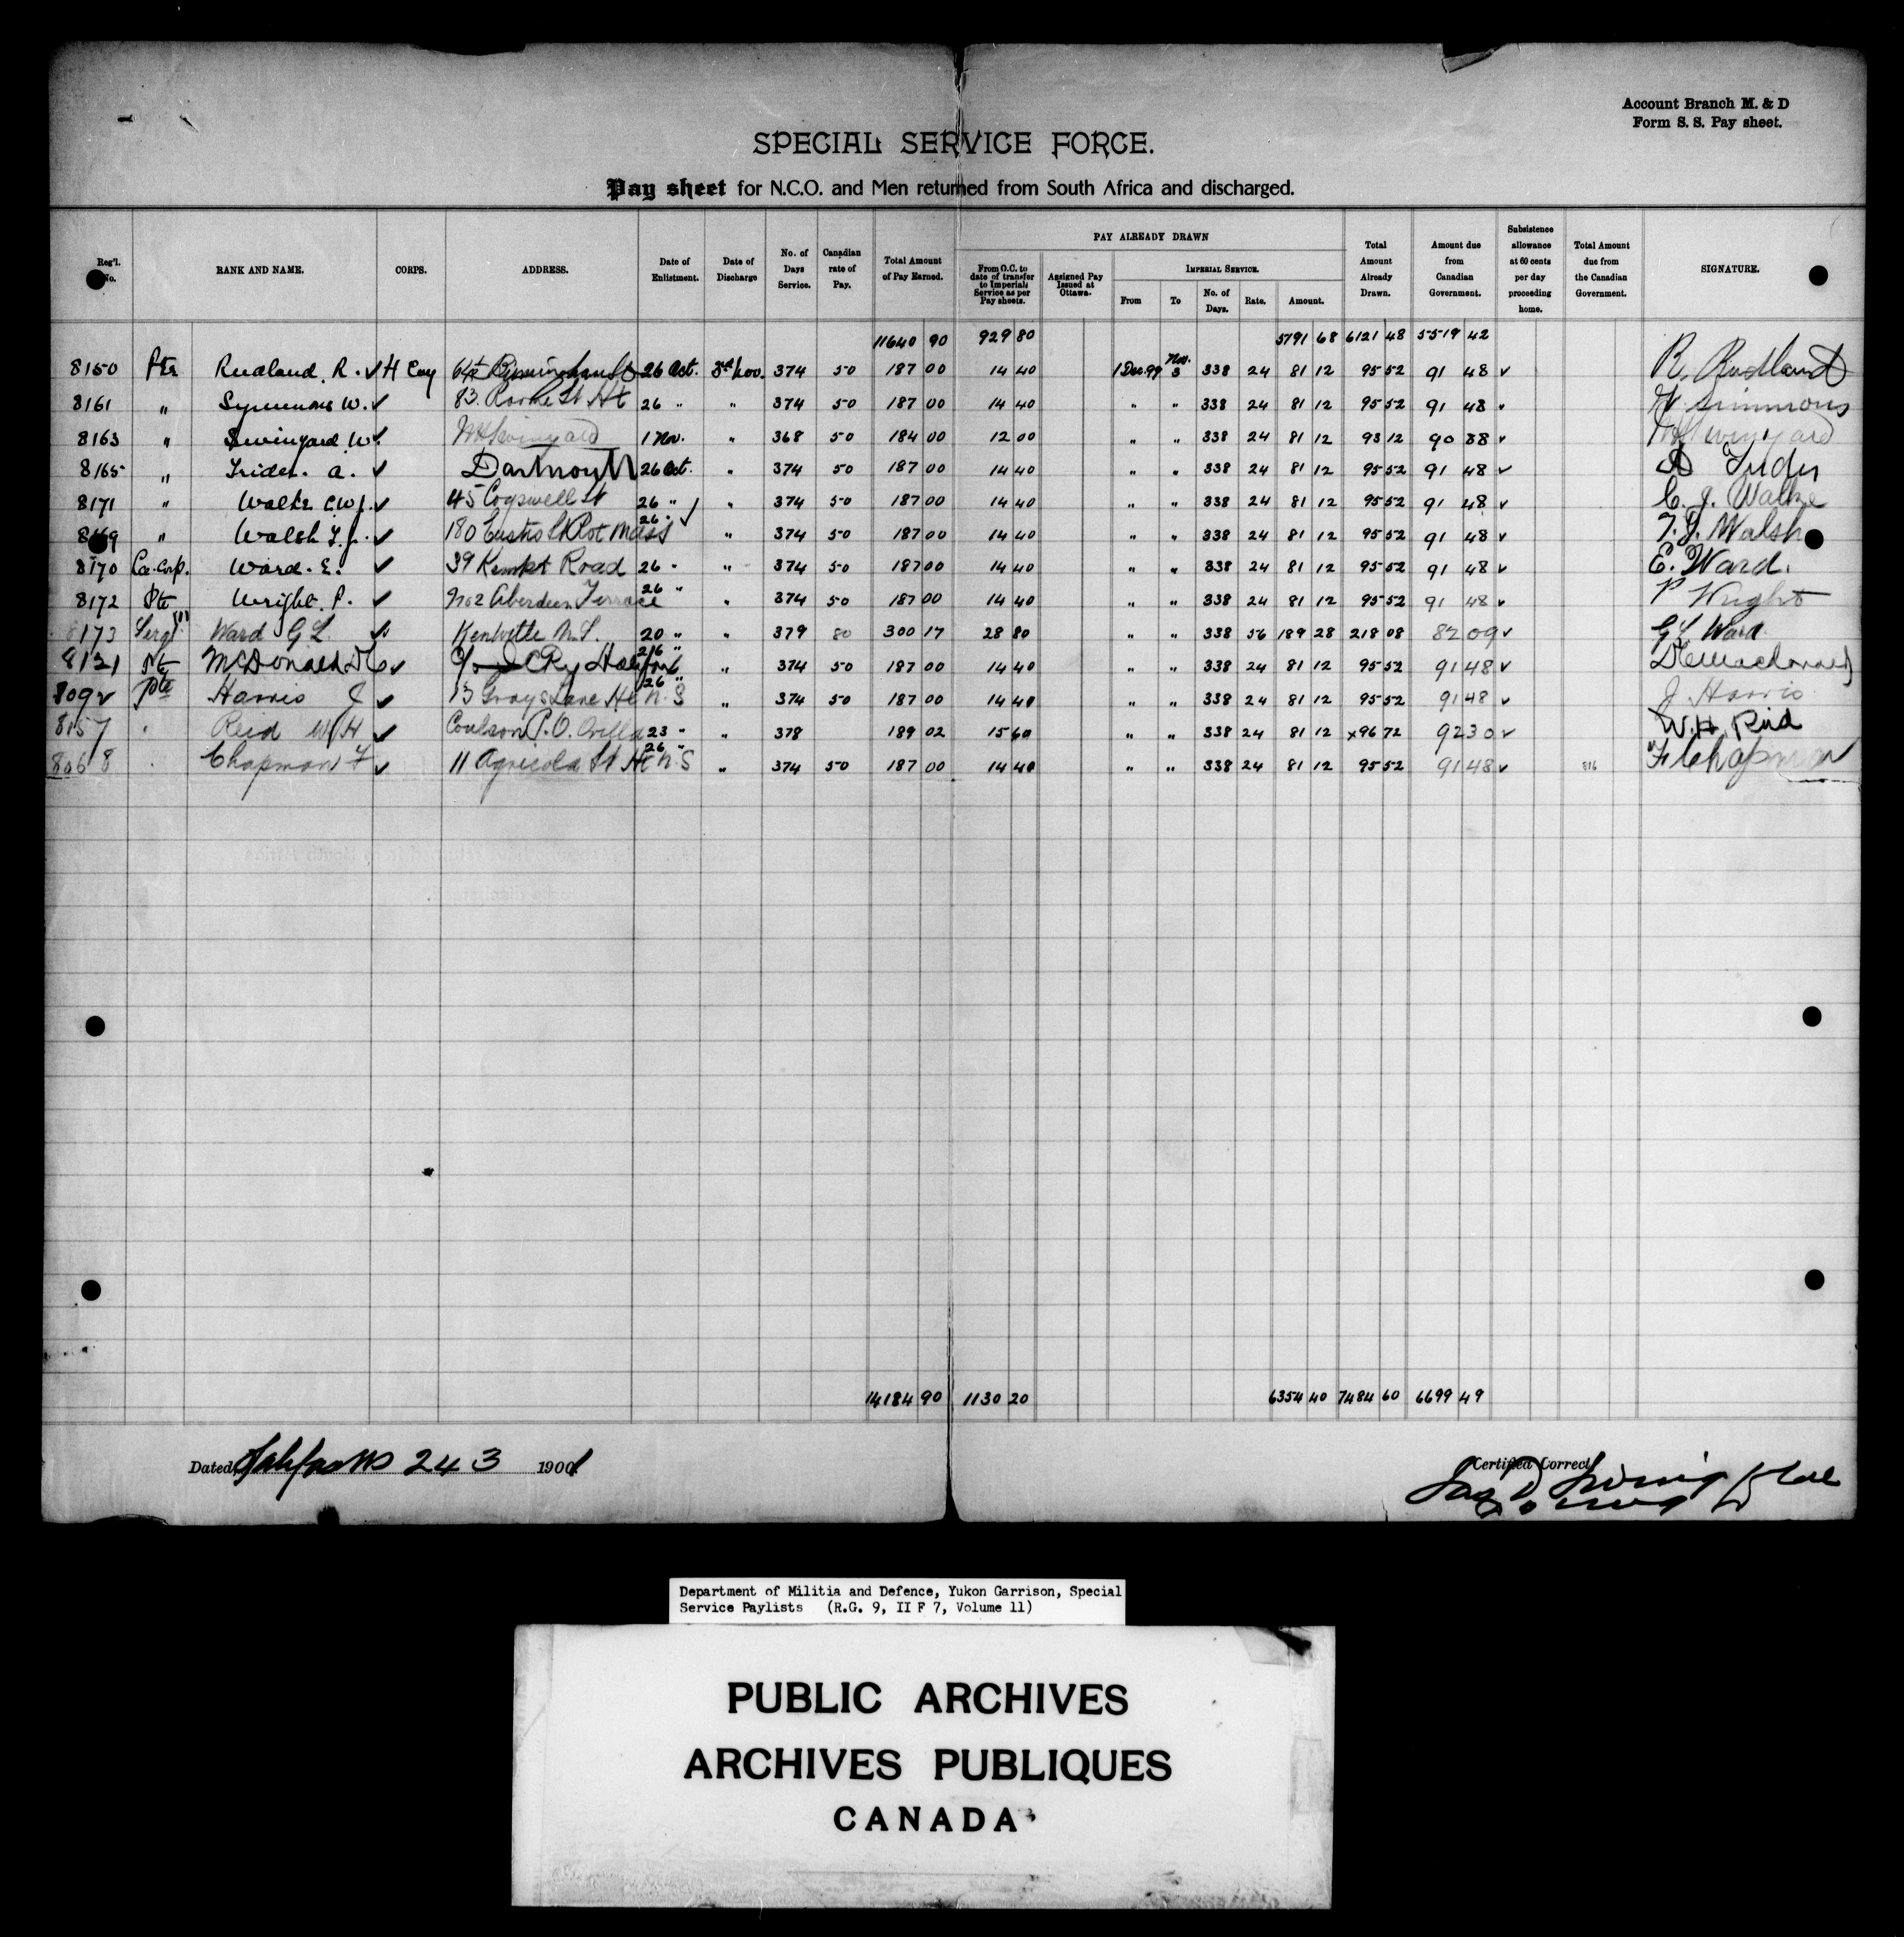 Account Branch M. & D
Form S. S. Pay sheet.
SPECIAL SERVICE FORCE.
Pay sheet for N.C.O. and Men returned from South Africa and discharged.
Reg'l. No. RANK AND NAME. CORPS. ADDRESS. Date of Enlistment. Date of Discharge No. of Days Service. Canadian rate of Pay. Total Amount of Pay Earned. PAY ALREADY DRAWN From O.C. to date of transfer to Imperial Service as per Pay sheets. Assigned Pay Issued at Ottawa. IMPERIAL SERVICE. From To No. of Days. Rate. Amount. Total Amount Already Drawn. Amount due from Canadian Government. Subsistence allowance at 60 cents per day proceeding home. Total Amount due from the Canadian Government. SIGNATURE.
11640 90 929 80 5791 68 6121 48 5519 42
8150 Pte Rudland. R. ✓ H Coy 64 Birmingham St 26 Oct. 3rd Nov. 374 50 187 00 14 40 1 Dec. 99 Nov. 3 338 24 81 12 95 52 91 48 ✓ R. Rudland
8161 " Symmons W. ✓ 83. St 26 " " 374 50 187 00 14 40 " " 338 24 81 12 95 52 91 48 ✓ W. Simmons
8163 " Swinyard W. ✓ WHSwinyard 1 Nov. " 368 50 184 00 12 00 " " 338 24 81 12 93 12 90 88 ✓ WHSwinyard
8165 " Trider. A. ✓ Dartmouth 26 Oct. " 374 50 187 00 14 40 " " 338 24 81 12 95 52 91 48 ✓ A Trider
8171 " Walke C.W.J. ✓ 45 Cogswell St 26 " " 374 50 187 00 14 40 " " 338 24 81 12 95 52 91 48 ✓ C. J. Walke
8169 " Walsh T.J. ✓ 180 St Mass 26 " ✓ " 374 50 187 00 14 40 " " 338 24 81 12 95 52 91 48 ✓ T. J. Walsh
8170 Corp. Ward. E. ✓ 39 Kempt Road 26 " " 374 50 187 00 14 40 " " 338 24 81 12 95 52 91 48 ✓ E. Ward.
8172 Pte Wright. P. ✓ No 2 Aberdeen Terrace 26 " " 374 50 187 00 14 40 " " 338 24 81 12 95 52 91 48 ✓ P Wright
8173 Sergt Ward G L ✓ Kentville N.S. 20 " " 379 80 300 17 28 80 " " 338 56 189 28 218 08 82 09 ✓ G L Ward
8121 Pte McDonald D C ✓ c/o I C Ry Halifax 26 " " 374 50 187 00 14 40 " " 338 24 81 12 95 52 91 48 ✓ D C MacDonald
8092 Pte Harris J ✓ 13 Grays Lane Hx N.S 26 " " 374 50 187 00 14 40 " " 338 24 81 12 95 52 91 48 ✓ J. Harris
8157 " Reid W H ✓ Coulson P.O. Orillia 23 " " 378 189 02 15 60 " " 338 24 81 12 x96 72 92 30 ✓ W. H. Reid
8068 " Chapman F ✓ 11 Agricola St Hx N.S 26 " " 374 50 187 00 14 40 " " 338 24 81 12 95 52 91 48 ✓ 816 F Chapman
14184 90 1130 20 6354 40 7484 60 6699 49
Dated, Halifax NS 24 3 1901
Certified Correct
Department of Militia and Defence, Yukon Garrison, Special
Service Paylists (R.G. 9, II F 7, Volume 11)
PUBLIC ARCHIVES
ARCHIVES PUBLIQUES
CANADA